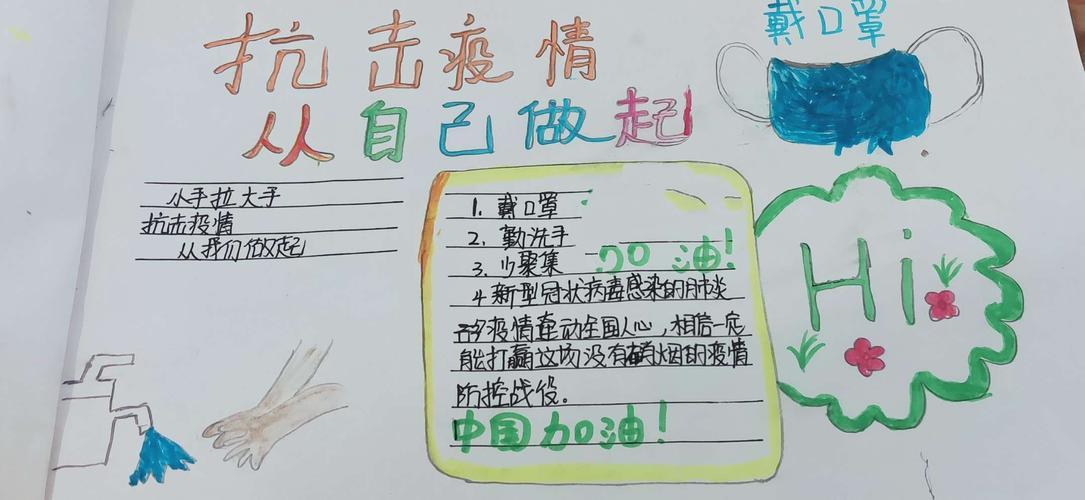 抗击疫情
从自己做起
戴口罩
小手拉大手
抗击疫情
从我们做起
1. 戴口罩
2. 勤洗手
3. 少聚集
加油!
4 新型冠状病毒感染的肺炎
疫情牵动全国人心,相信一定
能打赢这场没有硝烟的疫情
防控战役。
中国加油!
Hi